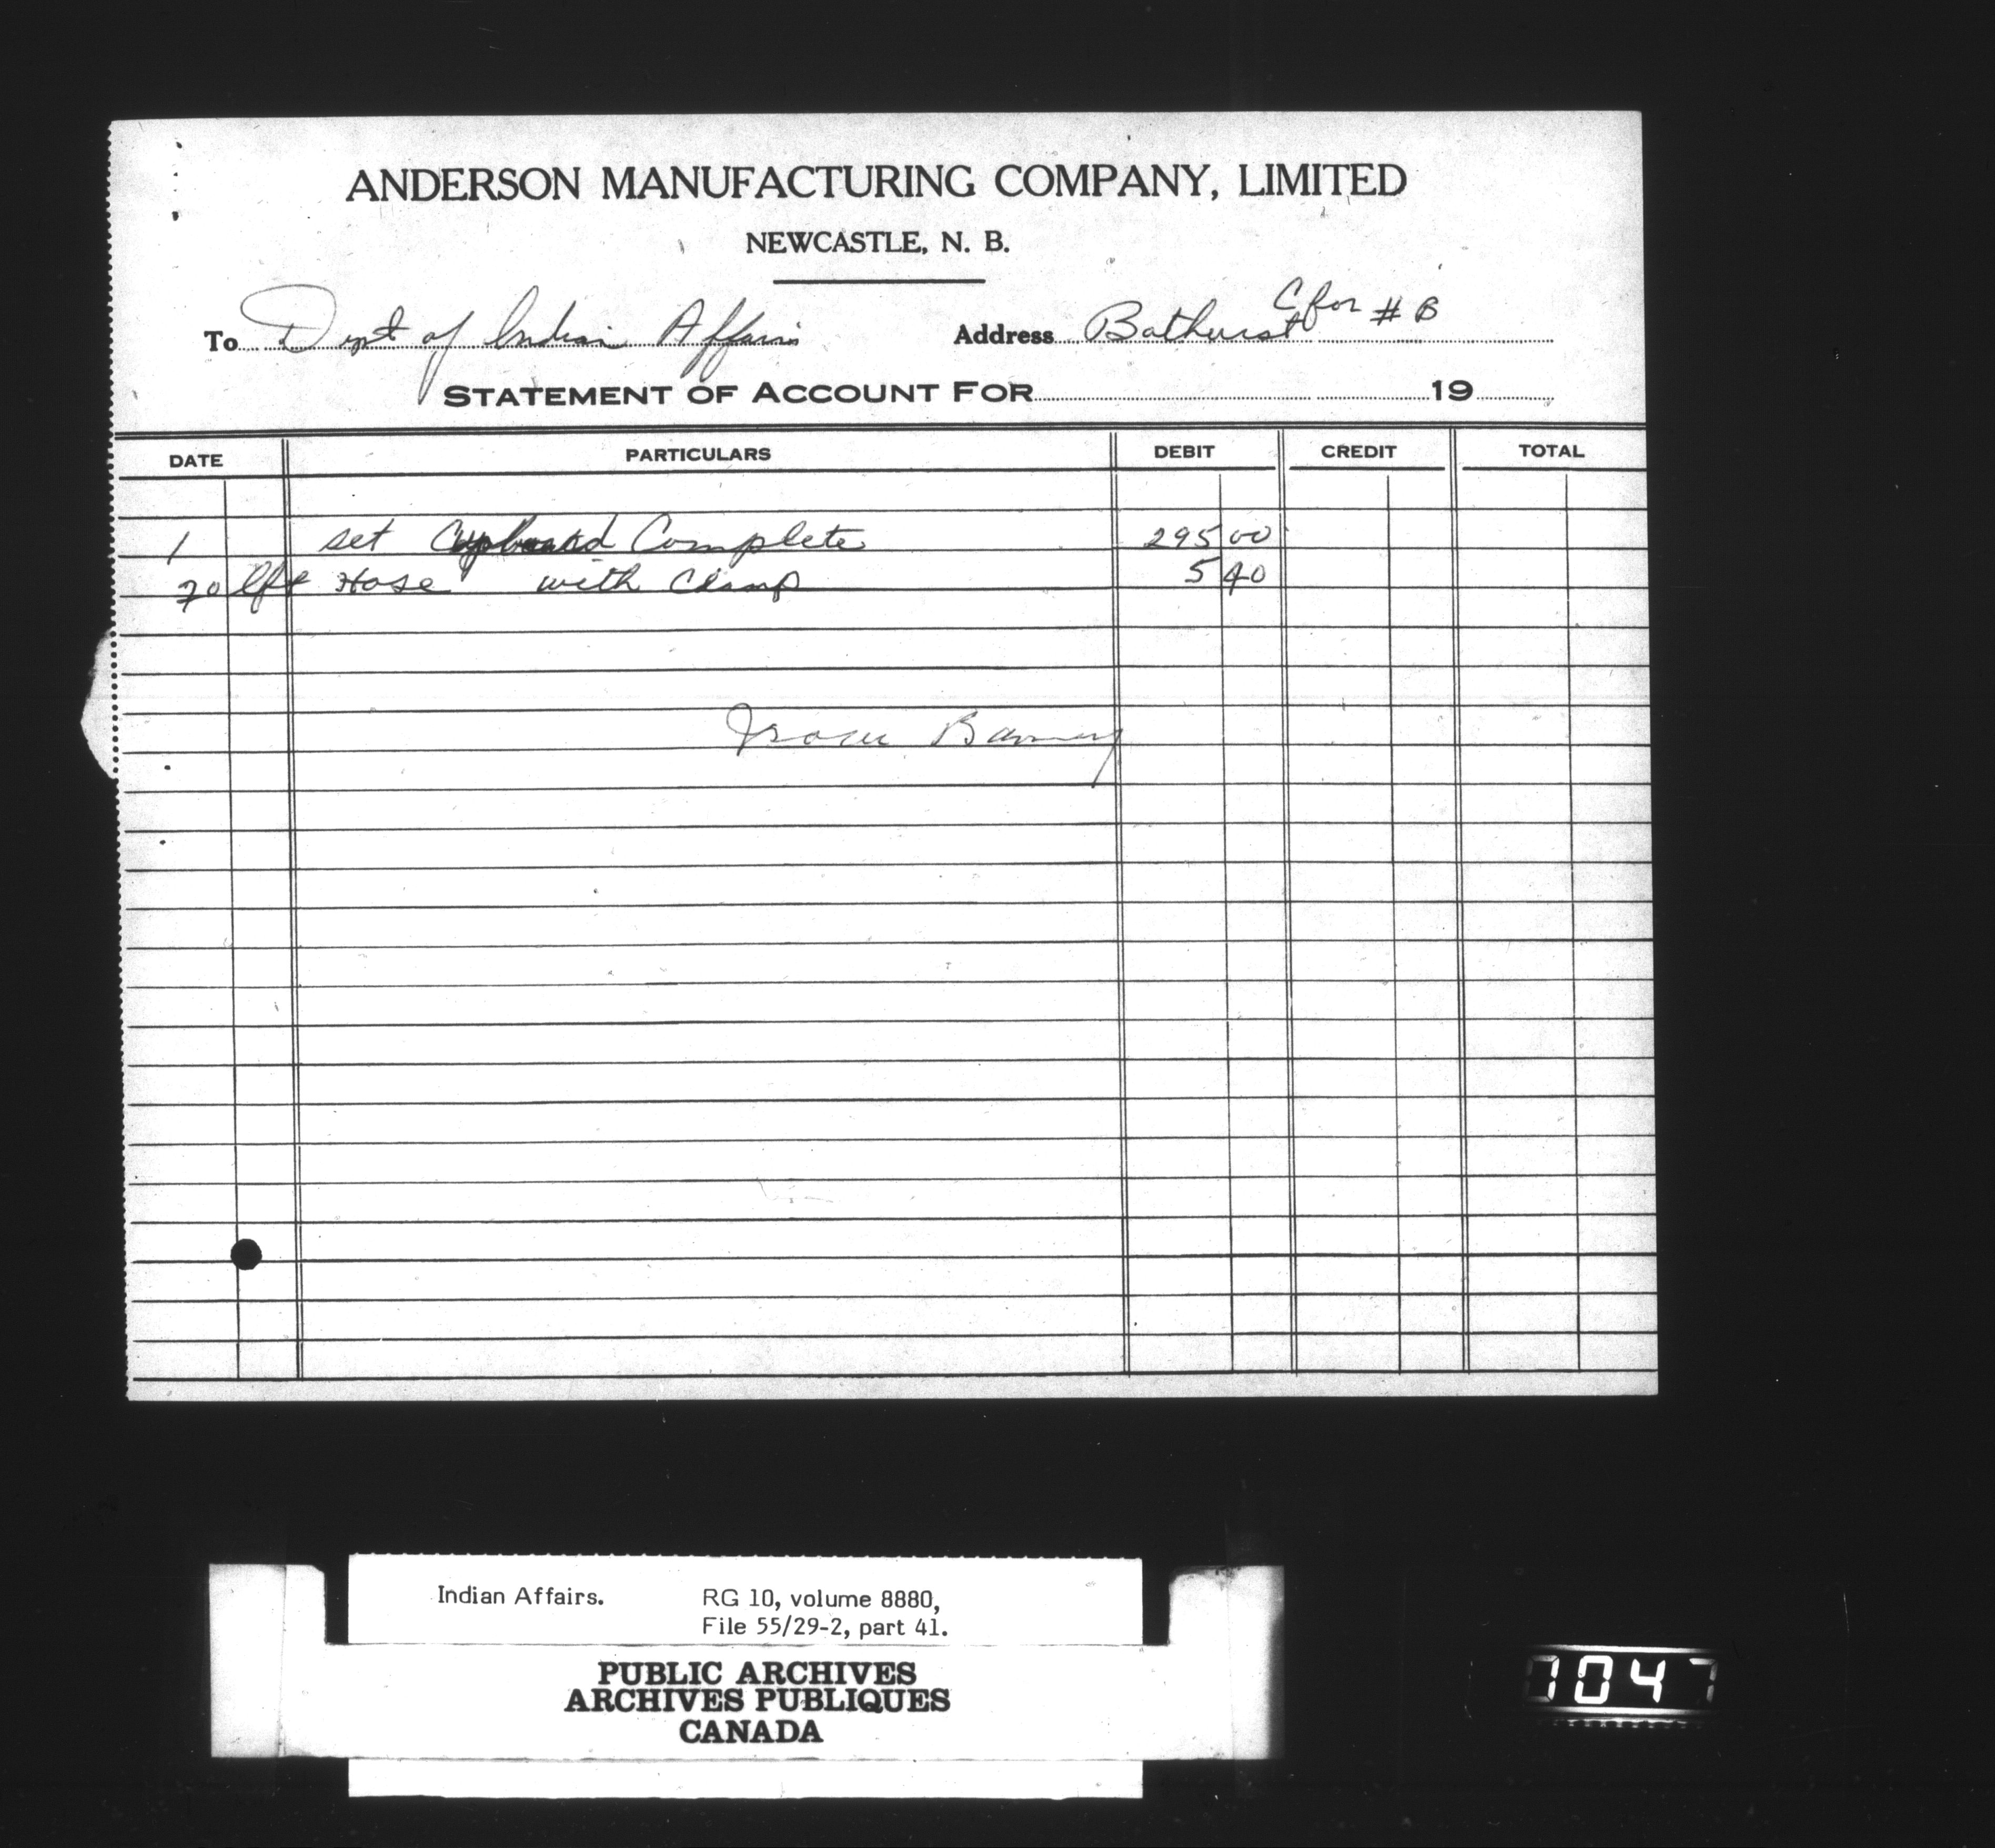 ANDERSON MANUFACTURING COMPANY, LIMITED
NEWCASTLE, N. B.
To Dept of Indian Affairs Address Bathurst # B
STATEMENT OF ACCOUNT FOR 19
DATE PARTICULARS DEBIT CREDIT TOTAL
1 set Cupboard Complete 295 00
Hose with Clamp 5 40
Indian Affairs. RG 10, volume 8880,
File 55/29-2, part 41.
PUBLIC ARCHIVES
ARCHIVES PUBLIQUES
CANADA
7047